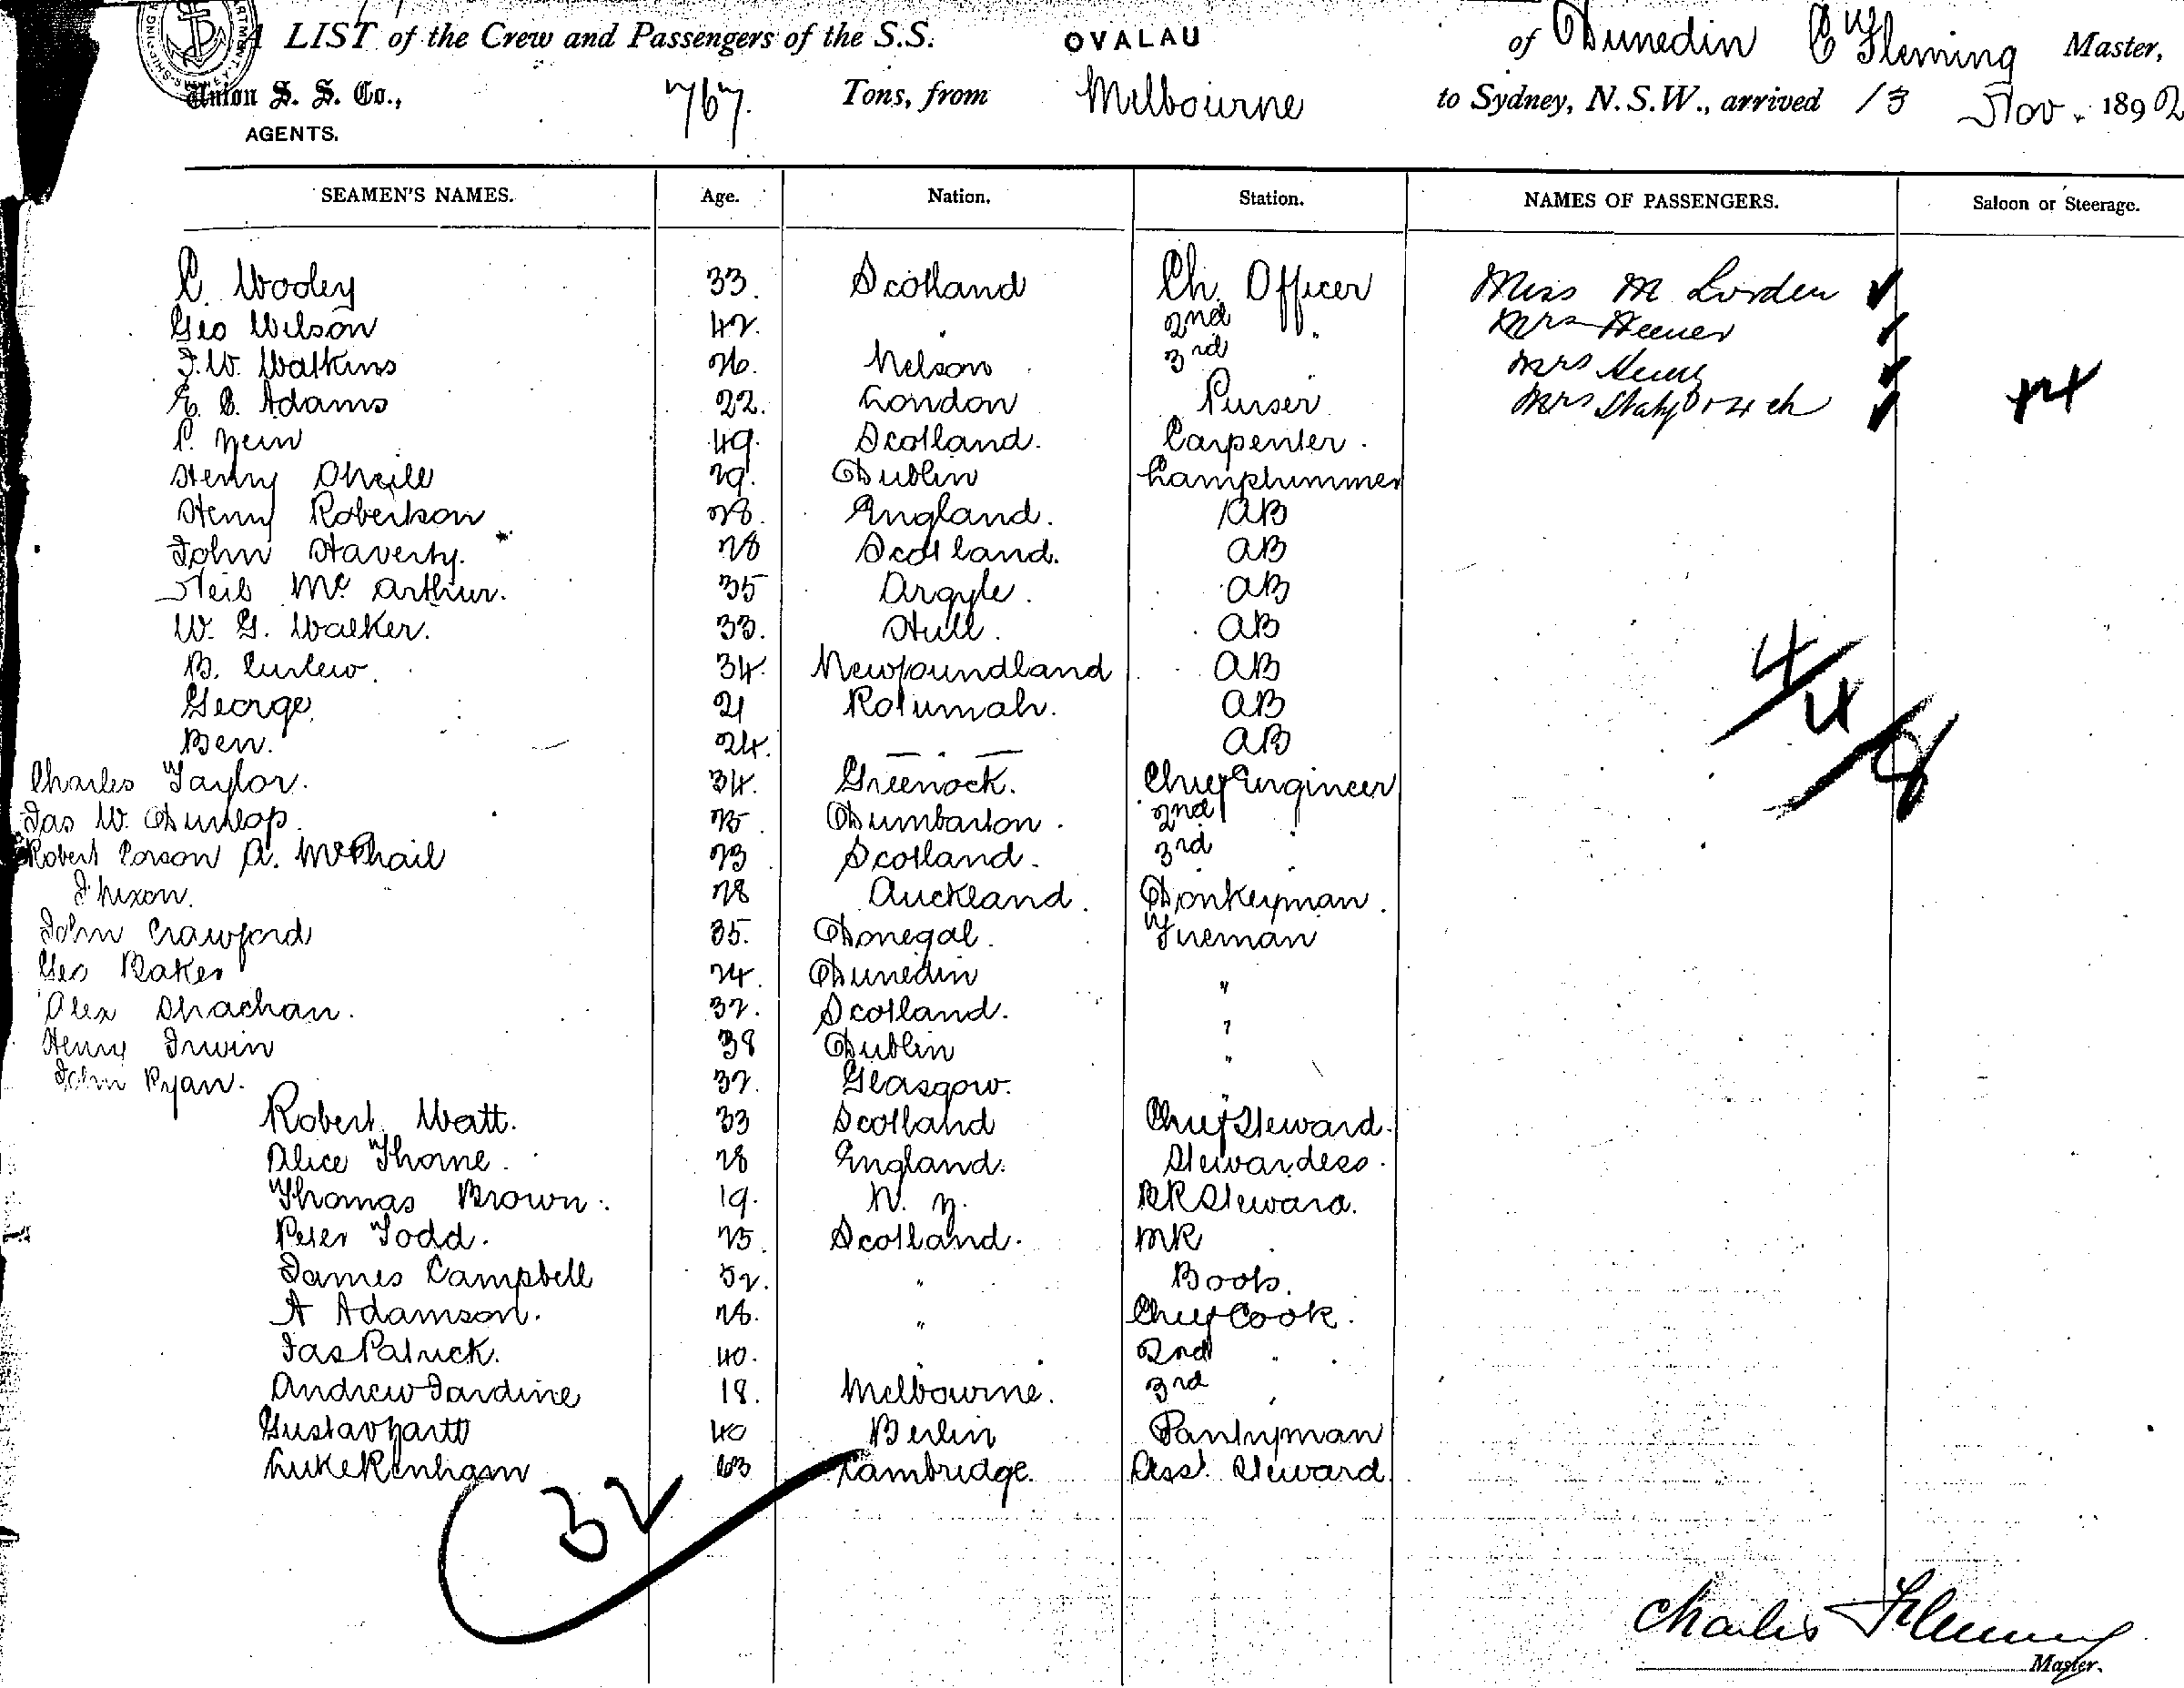 A LIST of the Crew and Passengers of the S.S. OVALAU of Dunedin C Fleming Master,
Union S. S. Co., 767. Tons, from Melbourne to Sydney, N.S.W., arrived 13 Nov. 1892
AGENTS.
SEAMEN'S NAMES. Age. Nation. Station. NAMES OF PASSENGERS. Saloon or Steerage.
C. Wooley 33. Scotland Ch. Officer Miss M
Geo Wilson 42. " 2nd " Mrs
J. W. Watkins 26. Nelson 3rd Mrs
E. B. Adams 22. London Purser Mrs
P. 49. Scotland. Carpenter.
Henry ONeill 29. Dublin Lamptrimmer
Henry Robertson 28. England. AB
John Haverty. 28 Scotland. AB
Neil Mc Arthur. 35 Argyle. AB
W. G. Walker. 33. Hull. AB
B. Curlew. 34. Newfoundland AB
George. 21 Rotumah. AB
Ben. 24. — " — AB
Charles Taylor. 34. Greenock. Chief Engineer
Jas W. Dunlop. 25. Dumbarton. 2nd "
Robert A. McPhail 23 Scotland. 3rd "
J Nixon. 28 Auckland. Donkeyman.
John Crawford 35. Donegal. Fireman
Geo Baker 24. Dunedin "
Alex Strachan. 32. Scotland. "
Henry Irwin 38 Dublin "
John Ryan. 32. Glasgow. "
Robert Watt. 33 Scotland Chief Steward.
Alice Thorne. 28 England. Stewardess.
Thomas Brown. 19. N. Z. BR Steward.
Peter Todd. 25. Scotland. MR
James Campbell 52. " Boots.
A Adamson. 28. " Chief Cook.
Jas Patrick. 40. " 2nd "
Andrew Jardine 18. Melbourne. 3rd "
Gustav 40 Berlin Pantryman
Luke 63 Cambridge. Asst. Steward
32
4/4/8
Charles Fleming
Master.